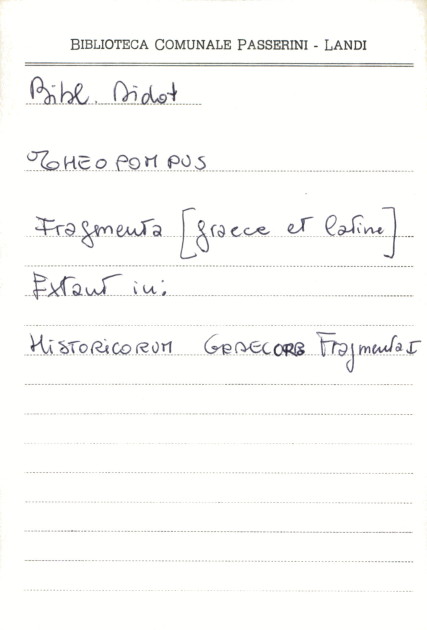 BIBLIOTECA COMUNALE PASSERINI - LANDI
Bibl. Didot
THEOPOMPUS
Fragmenta [graece et latine]
Extant in:
HISTORICORUM Fragmenta I